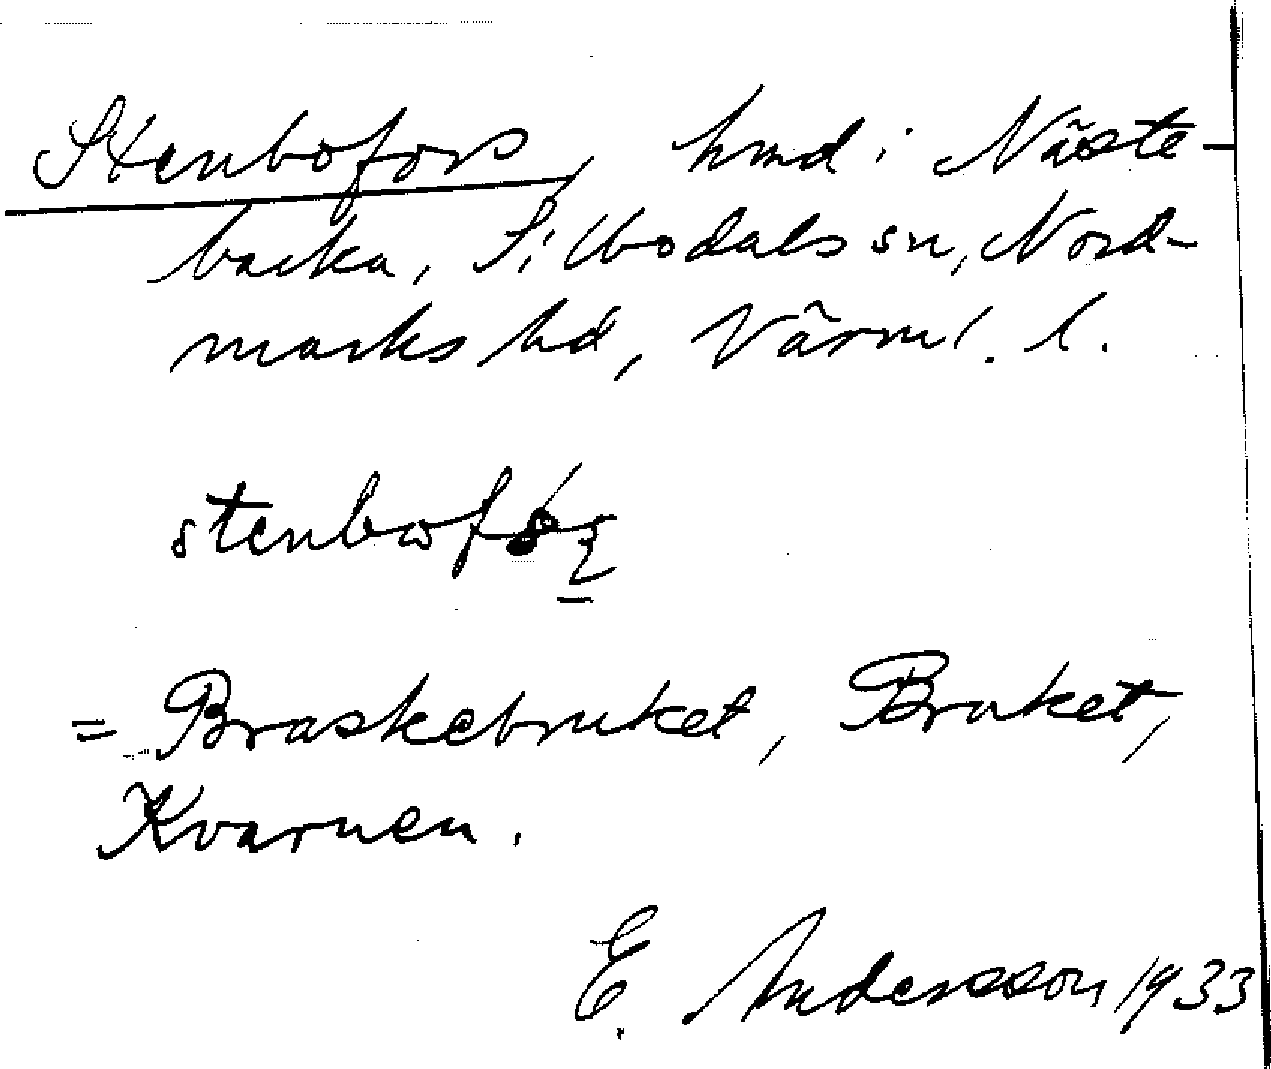 Stenbofors, hmd i Näste-
backa, Silbodals sn, Nord-
marks hd, Värml. l.
= Braskebruket, Bruket,
Kvarnen.
E. Andersson 1933